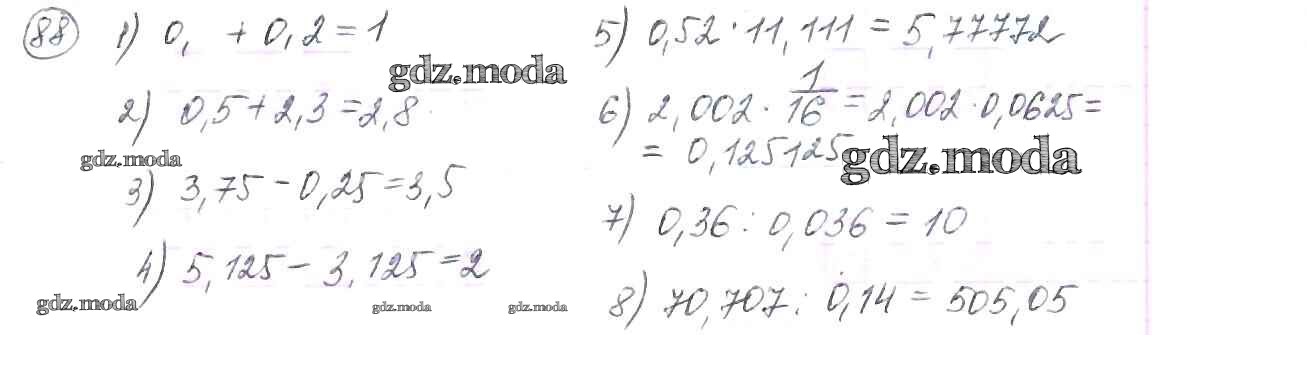 88 1) 0, + 0,2 = 1
gdz.moda
2) 0,5 + 2,3 = 2,8
gdz.moda
3) 3,75 - 0,25 = 3,5
4) 5,125 - 3,125 = 2
gdz.moda
gdz.moda
gdz.moda
5) 0,52 · 11,111 = 5,77772
6) 2,002 · 1/16 = 2,002 · 0,0625 =
= 0,125125
gdz.moda
7) 0,36 : 0,036 = 10
8) 70,707 : 0,14 = 505,05